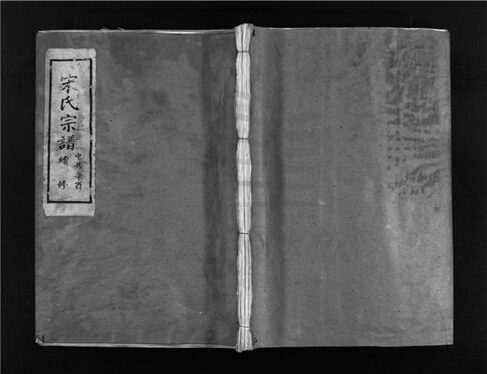 宋氏宗譜
中華辛酉
增修